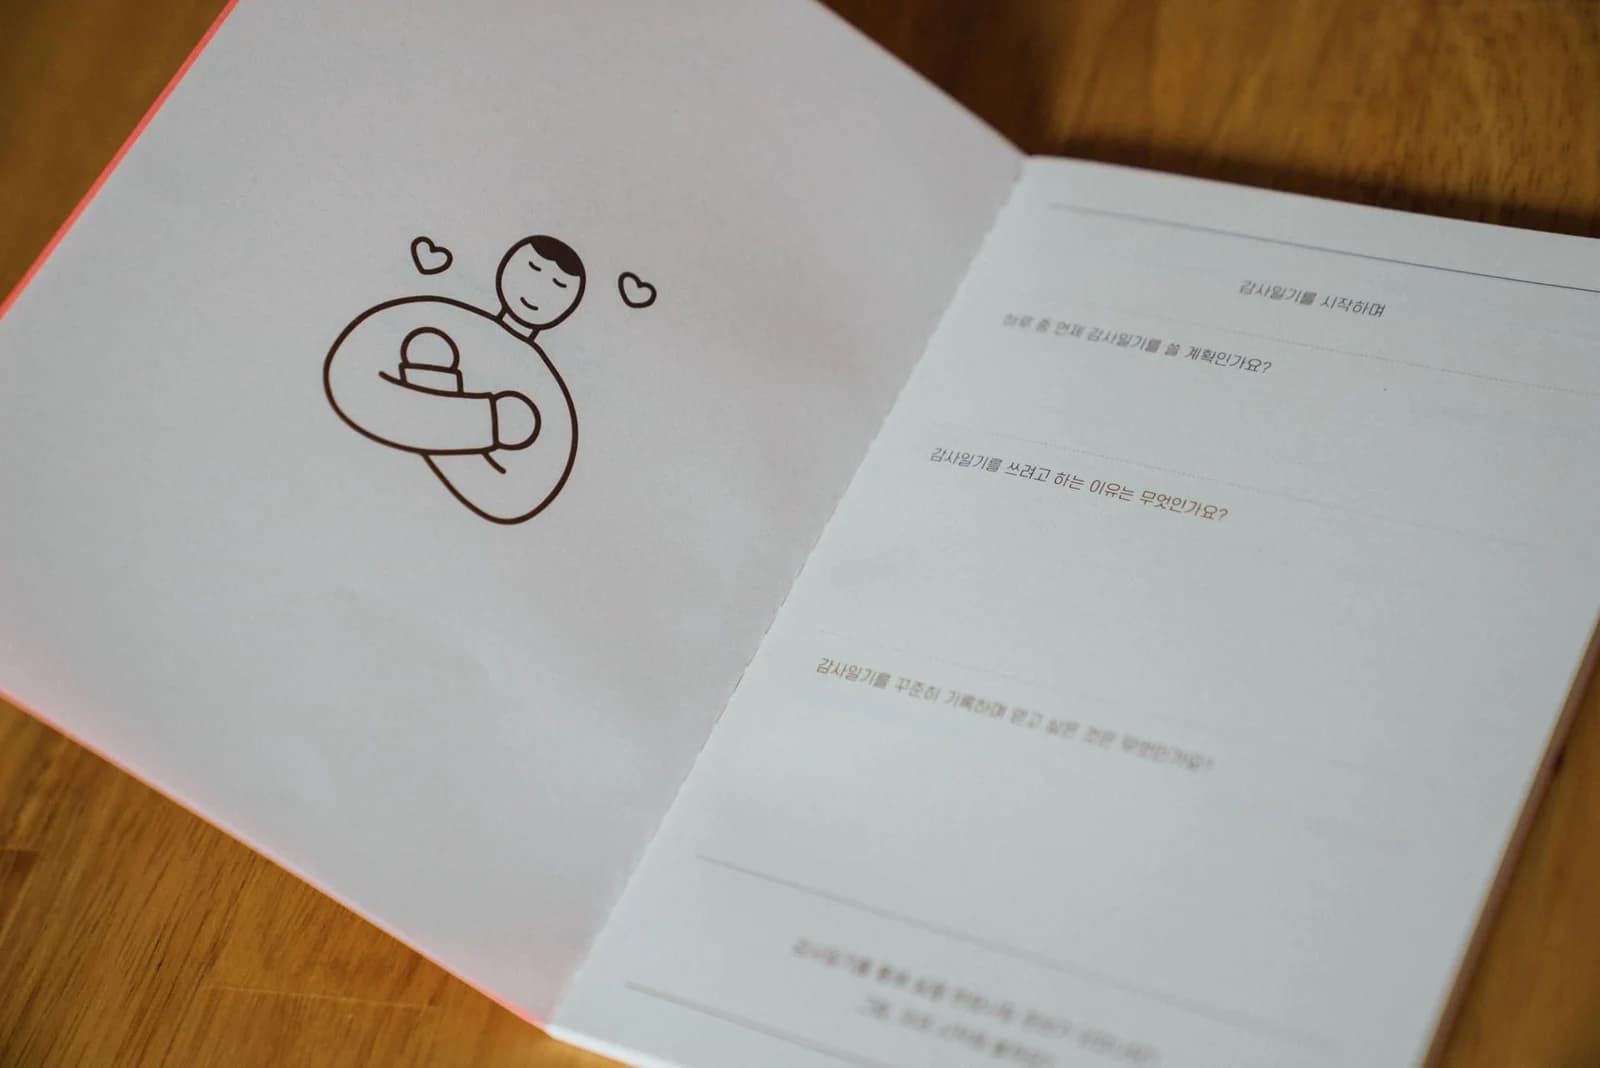 감사일기를 시작하며
하루 중 언제 감사일기를 쓸 계획인가요?
감사일기를 쓰려고 하는 이유는 무엇인가요?
감사일기를 꾸준히 기록하며 얻고 싶은 것은 무엇인가요?
감사일기를